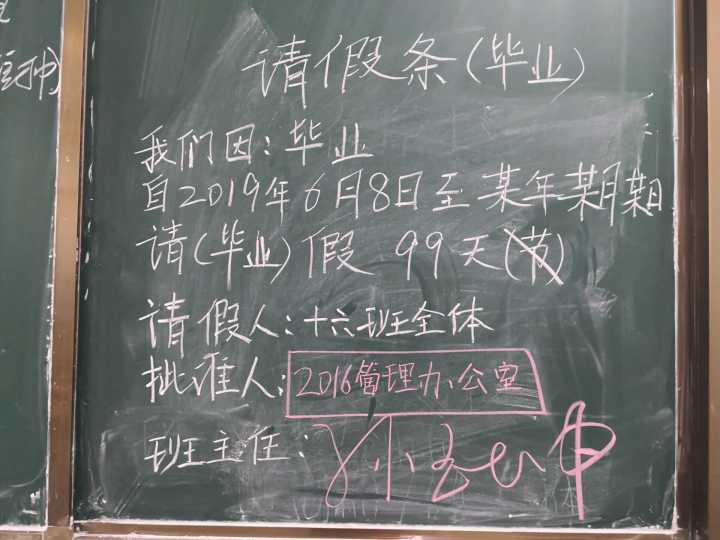 请假条(毕业)
我们因:毕业
自2019年6月8日至某年某月某日
请(毕业)假 99天(节)
请假人:十六班全体
批准人:2016管理办公室
班主任: